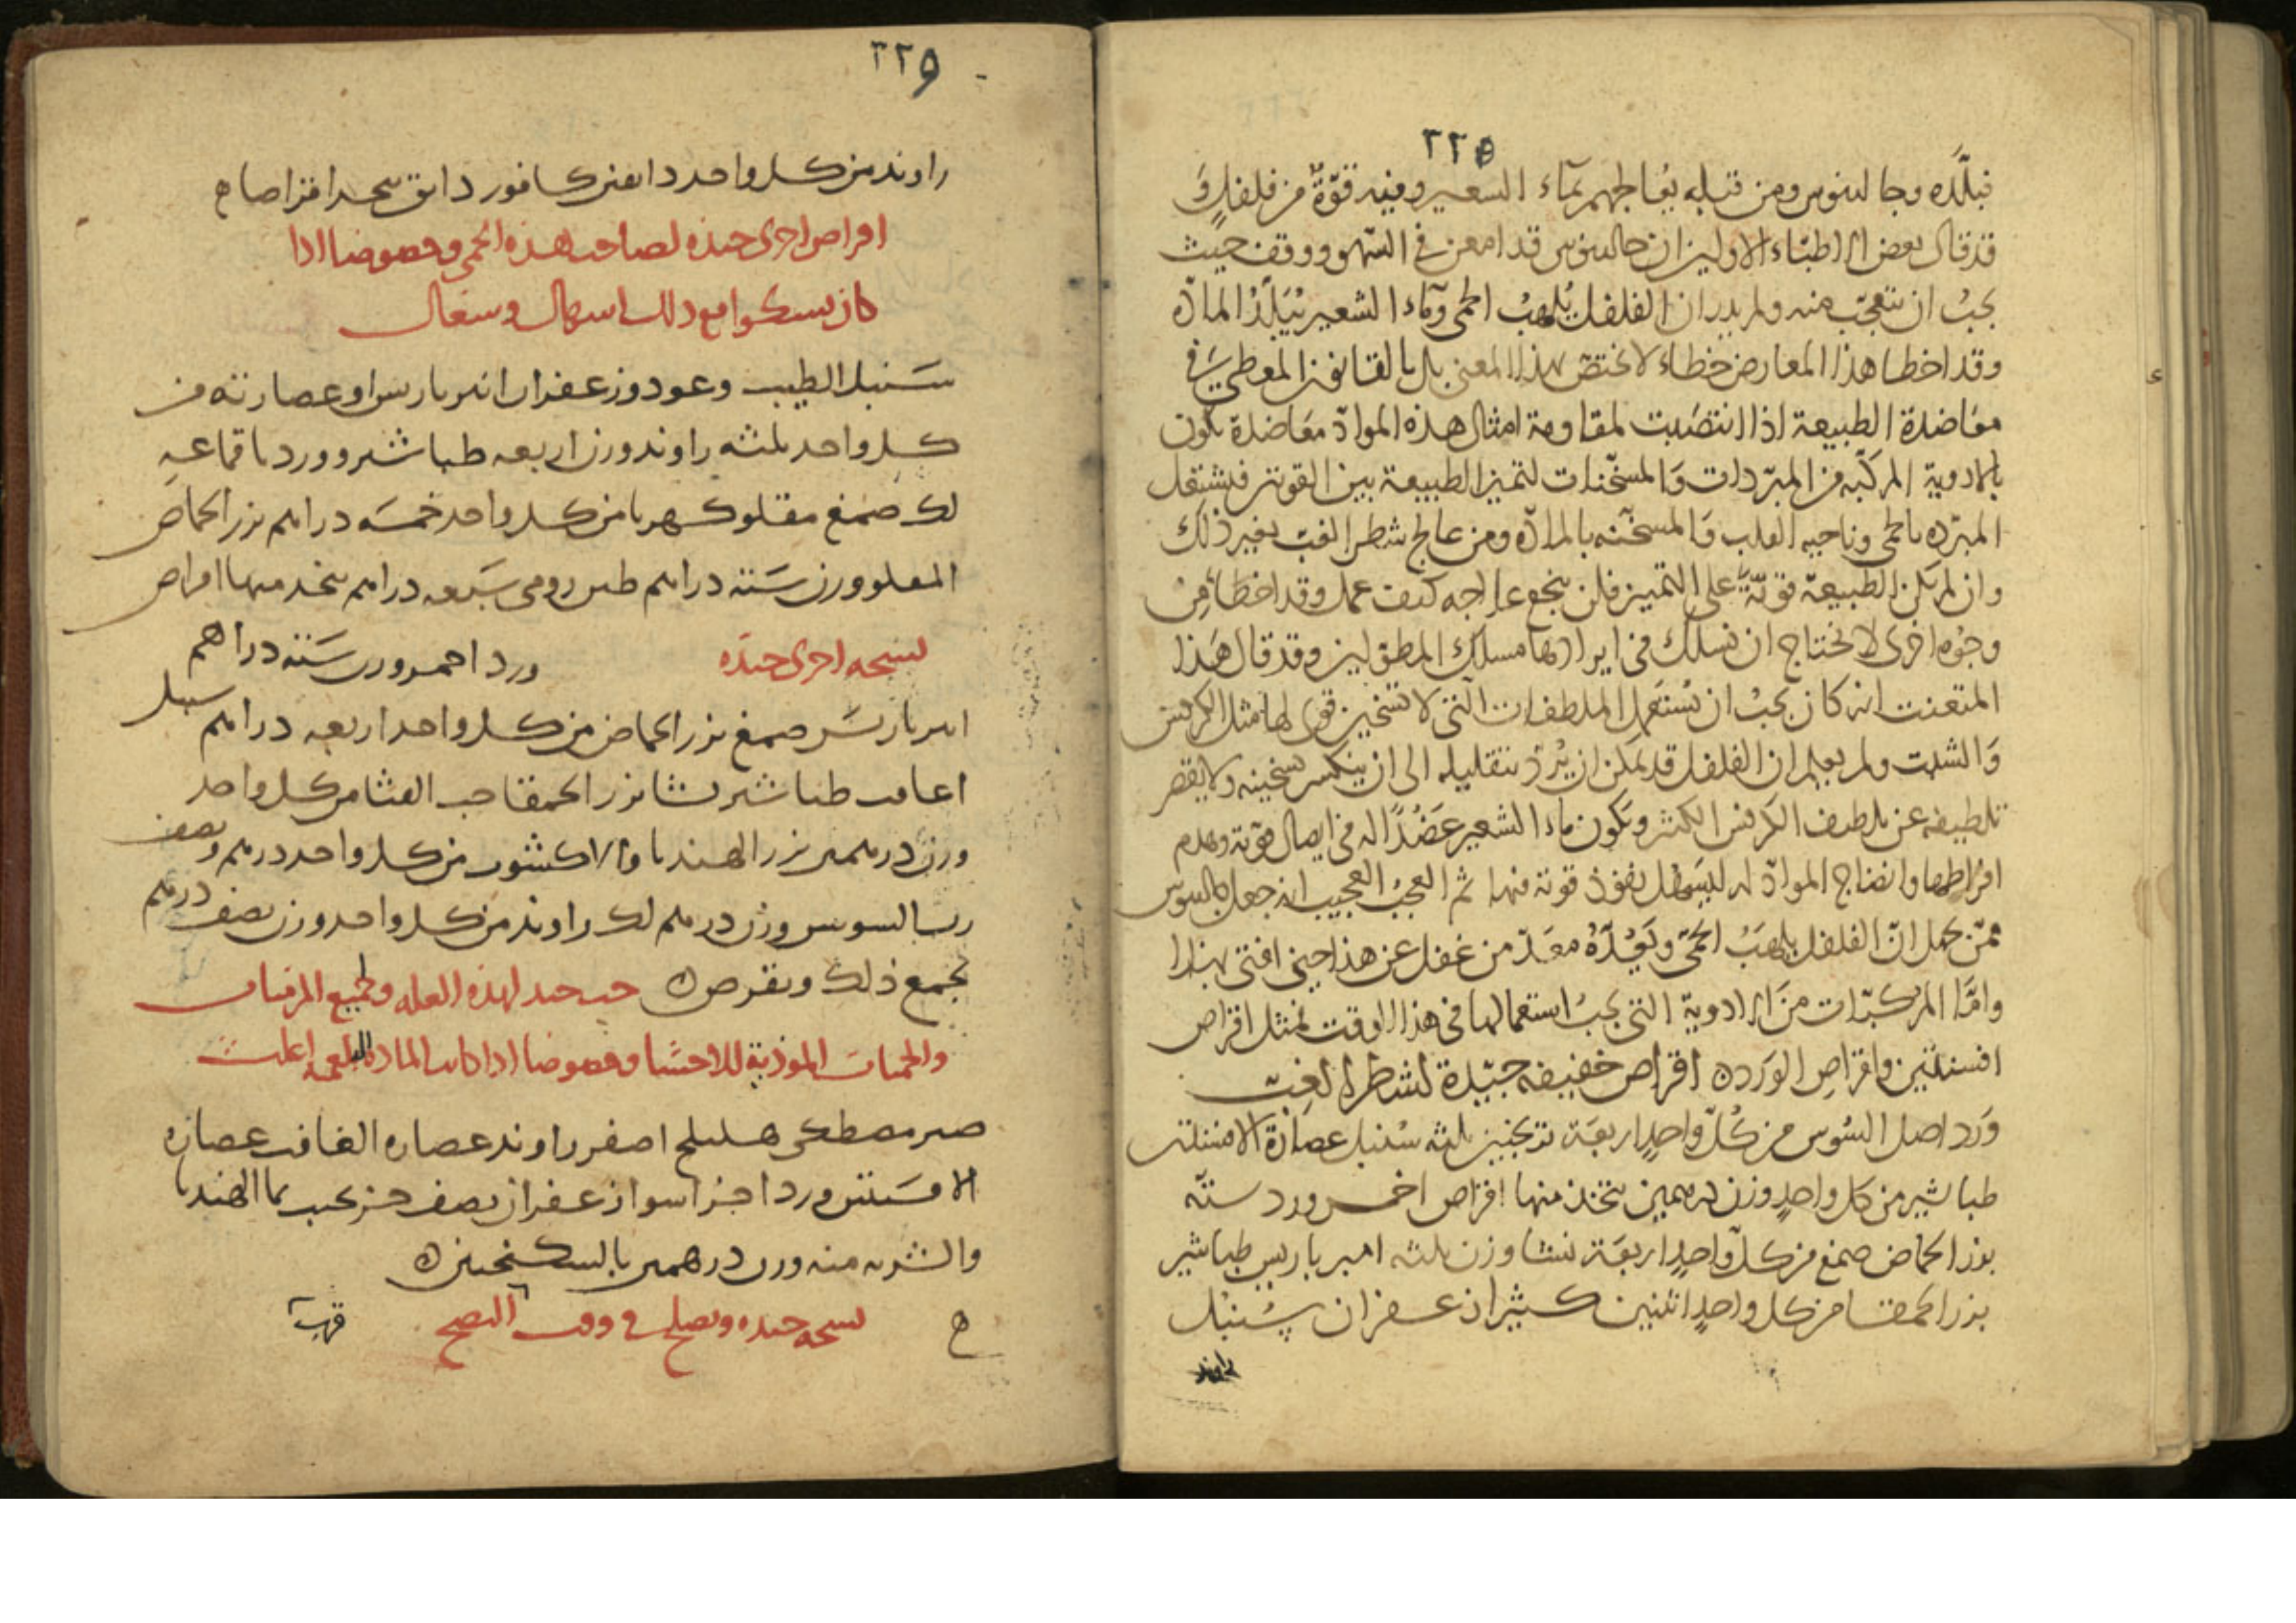 ٢٢٥
وجالينوس ومن قبله يعالجهم بماء الشعير وفيه قوة من فلفل و
قد قال بعض الاطباء الاولين ان جالينوس قد امعن في السهو ووقف حيث
يجب ان يتعجب منه ولم يدر ان الفلفل يلهب الحمى وماء الشعير يبلد المادة
وقد اخطا هذا المعارض خطاء لا يختص بهذا المعنى بل بالقانون المعطى في
معاضدة الطبيعة اذا انتصبت لمقاومة امثال هذه المواد معاضدة تكون
بالادوية المركبه من المبردات والمسخنات لتميز الطبيعة بين القوتين فيشتغل
المبرده بالحمى وناحيه القلب والمسخنه بالمادة ومن عالج شطر الغب بغير ذلك
وان لم تكن الطبيعة قوية على التميز فلن ينجع علاجه كيف عمل وقد اخطا من
وجوه اخرى لا نحتاج ان نسلك في ايرادها مسلك المطولين وقد قال هذا
المتعنت انه كان يجب ان يستعمل الملطفات التي لا تسخين قوى لها مثل الكرفس
والشبت ولم يعلم ان الفلفل قد يمكن ان يرد بتقليله الى ان ينكسر تسخينه ولا يقصر
تلطيفه عن تلطيف الكرفس الكثير ويكون ماء الشعير عضدا له في ايصال قوته وهدم
افراطها وانضاج المواد له ليسهل نفوذ قوته فيها ثم العجب العجيب انه جعل جالينوس
ممن يجهل ان الفلفل يلهب الحمى من غفل عن هذا حين افتى بهذا
واما المركبات من الادوية التي يجب استعمالها في هذا الوقت فمثل اقراص
افسنتين واقراص الورد ه اقراص خفيفه جيدة لشطر الغب
ورد اصل السوس من كل واحد اربعة ترنجبين ثلثه سنبل عصارة الافسنتين
طباشير من كل واحد وزن درهمين يتخذ منها اقراص اخر ورد سته
بزر الحماض صمغ من كل واحد اربعة نشا وزن ثلثه امبرباريس طباشير
بزر الحمقا من كل واحد اثنين كثيرا زعفران سنبل
راوند
٢٢٥
راوند من كل واحد دانقين كافور دانق يتخذ اقراصا ه
اقراص اخرى جيده لصاحب هذه الحمى وخصوصا اذا
كان يشكوا مع ذلك اسهال وسعال
سنبل الطيب وعود وزعفران انبرباريس او عصارته من
كل واحد ثلثه راوند وزن اربعه طباشير وورد باقماعه
لك صمغ مقلو كهربا من كل واحد خمسه دراهم بزر الحماض
المقلو وزن سته دراهم طين رومى سبعه دراهم يتخذ منها اقراص
نسخه اخرى جيده ورد احمر وزن سته دراهم
انبرباريس صمغ بزر الحماض من كل واحد اربعه دراهم سنبل
غافت طباشير نشا بزر الحمقا حب القثا من كل واحد
وزن درهمين بزر الهندبا والاكشوث من كل واحد درهم ونصف
رب السوس وزن درهم لك راوند من كل واحد وزن نصف درهم
يجمع ذلك ويقرص ه حب جيد لهذه العله ولجميع المزمنات
والحميات الموذية للاحشا وخصوصا اذا كانت المادة البلغميه اغلب
صبر مصطكى هليلج اصفر راوند عصاره الغافت عصاره
الافسنتين ورد اجزا سوا زعفران نصف جز يحبب بما الهندبا
والشربه منه وزن درهمين بالسكنجبين ه
نسخه جيده وتصلح في وقت النضج